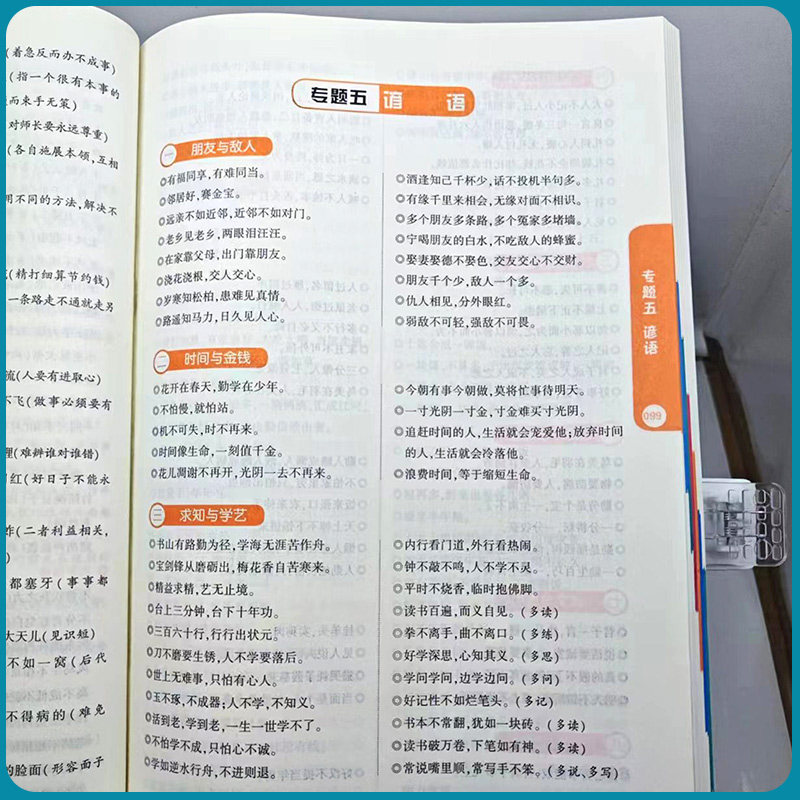 (着急反而办不成事)
(指一个很有本事的
而束手无策)
对师长要永远尊重)
(各自施展本领,互相
用不同的方法,解决不
(精打细算节约钱)
一条路走不通就走另
流(人要有进取心)
不飞(做事必须要有
(难辨谁对谁错)
红(好日子不能永
(二者利益相关,
都塞牙(事事都
大天儿(见识短)
不如一窝(后代
不得病的(难免
的脸面(形容面子
专题五 谚 语
一 朋友与敌人
◎有福同享,有难同当。
◎邻居好,赛金宝。
◎远亲不如近邻,近邻不如对门。
◎老乡见老乡,两眼泪汪汪。
◎在家靠父母,出门靠朋友。
◎浇花浇根,交人交心。
◎岁寒知松柏,患难见真情。
◎路遥知马力,日久见人心。
◎酒逢知己千杯少,话不投机半句多。
◎有缘千里来相会,无缘对面不相识。
◎多个朋友多条路,多个冤家多堵墙。
◎宁喝朋友的白水,不吃敌人的蜂蜜。
◎娶妻娶德不娶色,交友交心不交财。
◎朋友千个少,敌人一个多。
◎仇人相见,分外眼红。
◎弱敌不可轻,强敌不可畏。
二 时间与金钱
◎花开在春天,勤学在少年。
◎不怕慢,就怕站。
◎机不可失,时不再来。
◎时间像生命,一刻值千金。
◎花儿凋谢不再开,光阴一去不再来。
◎今朝有事今朝做,莫将忙事待明天。
◎一寸光阴一寸金,寸金难买寸光阴。
◎追赶时间的人,生活就会宠爱他;放弃时间
的人,生活就会冷落他。
◎浪费时间,等于缩短生命。
三 求知与学艺
◎书山有路勤为径,学海无涯苦作舟。
◎宝剑锋从磨砺出,梅花香自苦寒来。
◎精益求精,艺无止境。
◎台上三分钟,台下十年功。
◎三百六十行,行行出状元。
◎刀不磨要生锈,人不学要落后。
◎世上无难事,只怕有心人。
◎玉不琢,不成器;人不学,不知义。
◎活到老,学到老,一生一世学不了。
◎不怕学不成,只怕心不诚。
◎学如逆水行舟,不进则退。
◎内行看门道,外行看热闹。
◎钟不敲不鸣,人不学不灵。
◎平时不烧香,临时抱佛脚。
◎读书百遍,而义自见。(多读)
◎拳不离手,曲不离口。(多练)
◎好学深思,心知其义。(多思)
◎学问学问,边学边问。(多问)
◎好记性不如烂笔头。(多记)
◎书本不常翻,犹如一块砖。(多读)
◎读书破万卷,下笔如有神。(多读)
◎常说嘴里顺,常写手不笨。(多说、多写)
专题五 谚语
099